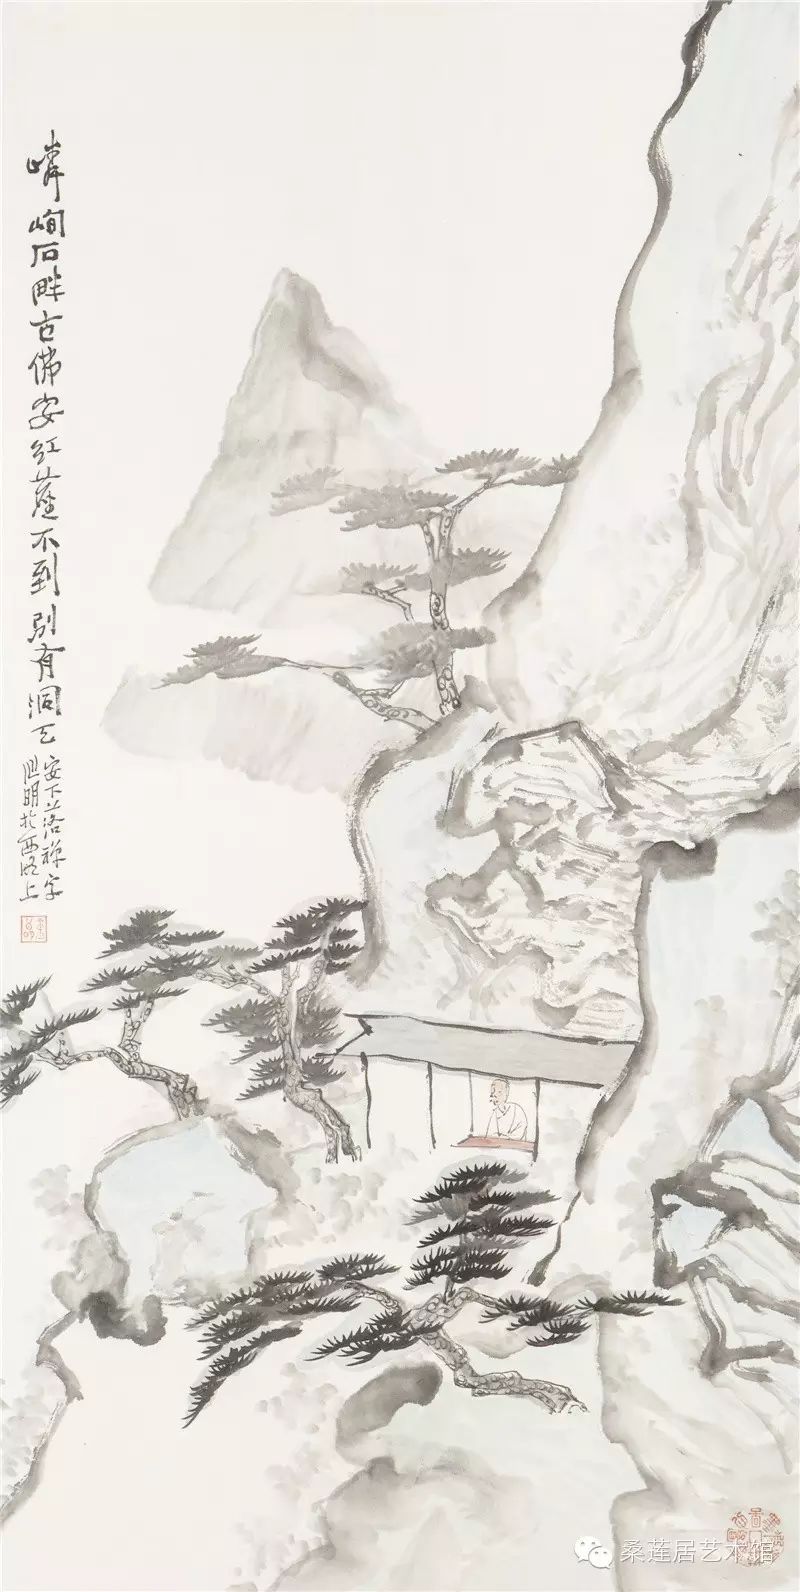 嶙峋石畔古佛安红尘不到别有洞天
安下落禅字
明于西湖上
桑莲居艺术馆